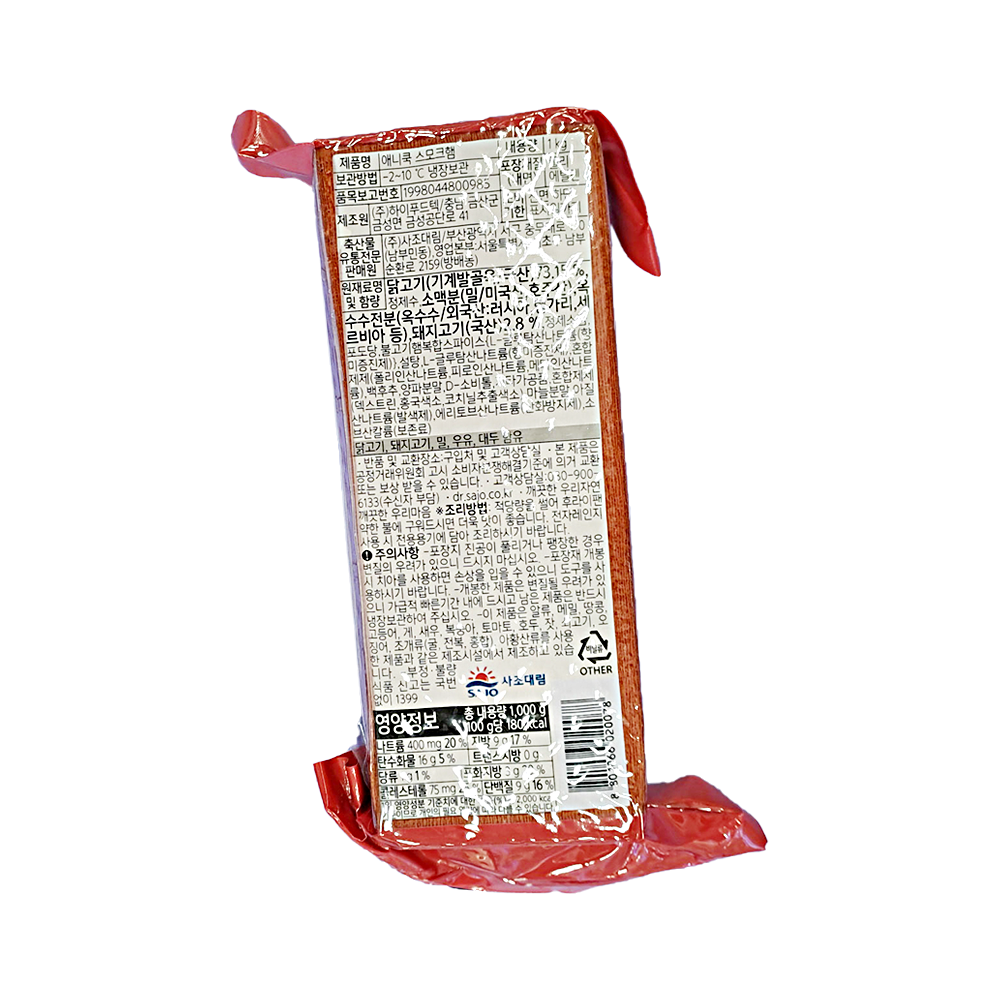 제품명 애니쿡 스모크햄 내용량 1kg
보관방법 -2~10 ℃ 냉장보관
품목보고번호 1998044800985
제조원 (주)하이푸드텍/충남 금산군
금성면 금성공단로 41
축산물
유통전문
판매원
(주)사조대림/부산광역시 서구
(남부민동),영업본부:서울특별시 남부
순환로 2159(방배동)
원재료명
및 함량
닭고기(기계발골육:국산)73.15%,
정제수,소맥분(밀/미국산,호주산),옥
수수전분(옥수수/외국산:러시아,헝가리,세
르비아 등),돼지고기(국산)2.8 %,정제소금,
포도당,불고기햄복합스파이스{L-글루탐산나트륨(향
미증진제)},설탕,L-글루탐산나트륨(향미증진제),혼합
제제(폴리인산나트륨,피로인산나트륨,메타인산나트
륨),백후추,양파분말,D-소비톨,혼합제제
덱스트린,홍국색소,코치닐추출색소),마늘분말,아질
산나트륨(발색제),에리토브산나트륨(산화방지제),소
브산칼륨(보존료)
닭고기, 돼지고기, 밀, 우유, 대두 함유
· 반품 및 교환장소:구입처 및 고객상담실 · 본 제품은
공정거래위원회 고시 소비자분쟁해결기준에 의거 교환
또는 보상 받을 수 있습니다. · 고객상담실:080-900-
6133(수신자 부담) · dr.sajo.co.kr · 깨끗한 우리자연
깨끗한 우리마음 ※조리방법: 적당량을 썰어 후라이팬
약한 불에 구워드시면 더욱 맛이 좋습니다. 전자레인지
사용 시 전용용기에 담아 조리하시기 바랍니다.
주의사항 -포장지 진공이 풀리거나 팽창한 경우
변질의 우려가 있으니 드시지 마십시오. -포장재 개봉
시 치아를 사용하면 손상을 입을 수 있으니 도구를 사
용하시기 바랍니다. -개봉한 제품은 변질될 우려가 있
으니 가급적 빠른기간 내에 드시고 남은 제품은 반드시
냉장보관하여 주십시오. -이 제품은 알류, 메밀, 땅콩,
고등어, 게, 새우, 복숭아, 토마토, 호두, 잣, 쇠고기, 오
징어, 조개류(굴, 전복, 홍합), 아황산류를 사용
한 제품과 같은 제조시설에서 제조하고 있습
니다. · 부정·불량
식품 신고는 국번
없이 1399
비닐류
OTHER
SAJO 사조대림
영양정보 총 내용량 1,000 g
100 g당 180 kcal
나트륨 400 mg 20 % 지방 9 g 17 %
탄수화물 16 g 5 % 트랜스지방 0 g
당류 1 % 포화지방 3 g 20 %
콜레스테롤 75 mg 단백질 9 g 16 %
영양성분 기준치에 대한 2,000 kcal
이므로 개인의 필요 다를 수 있습니다